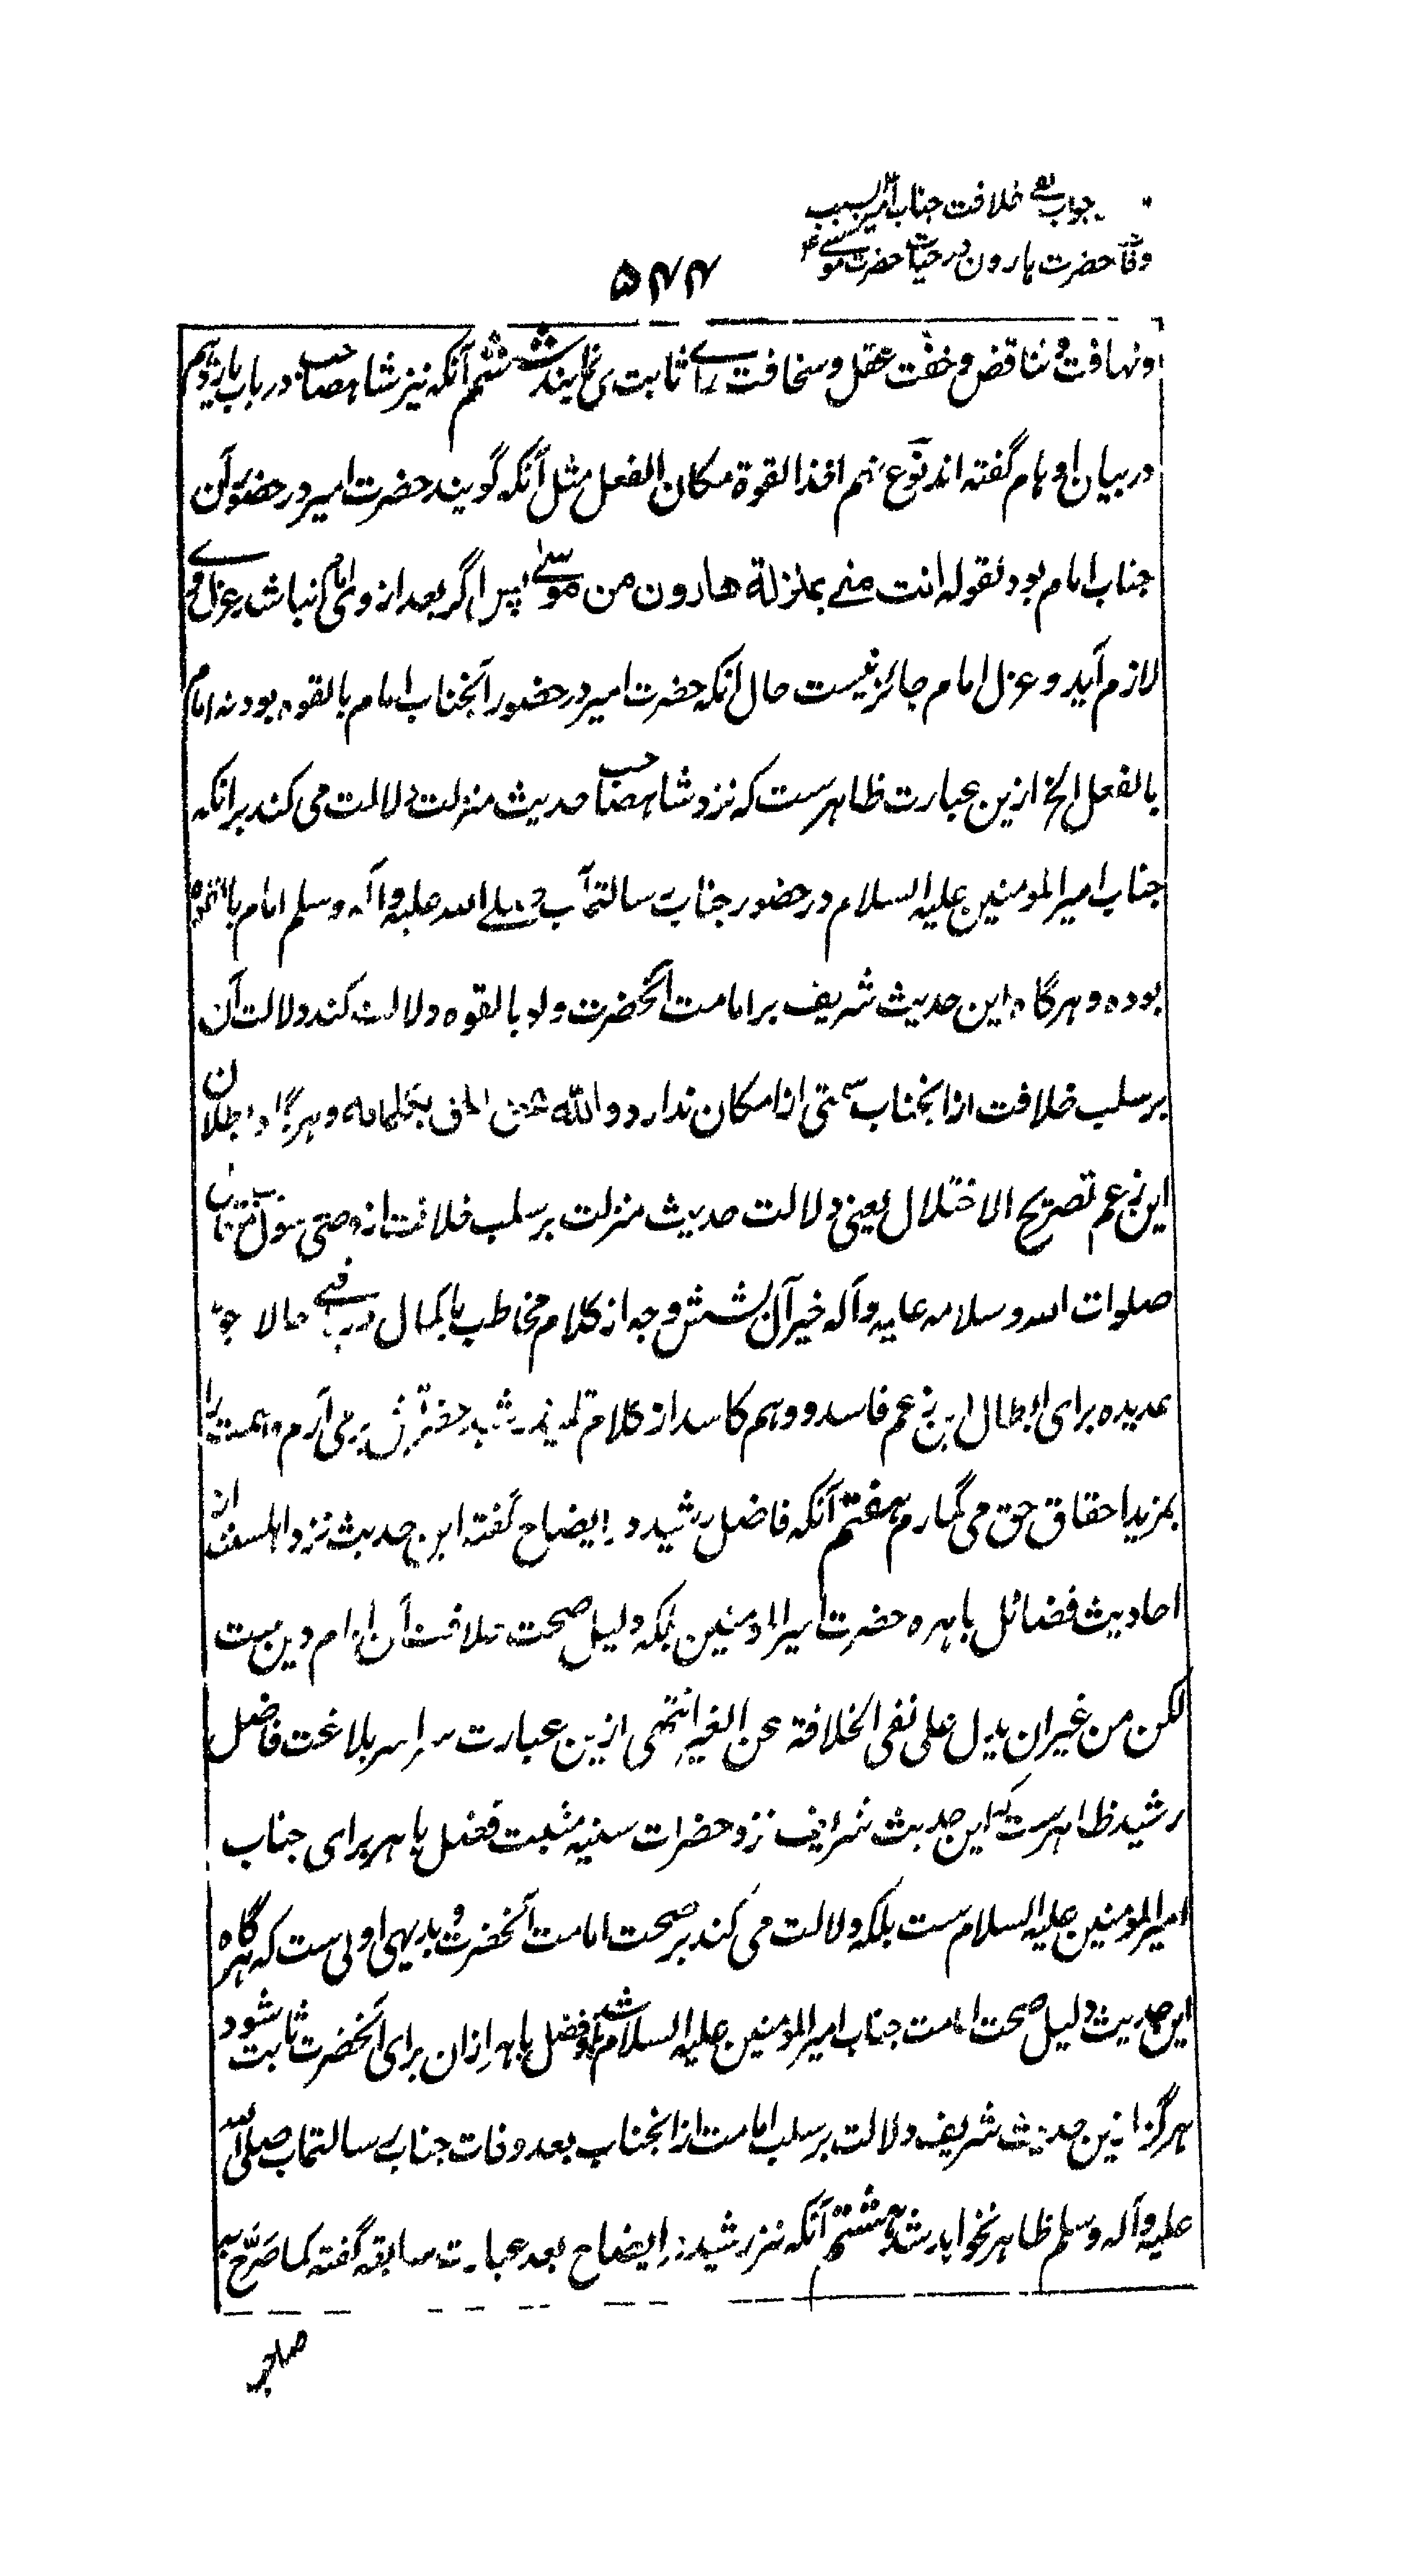 جواب نفی خلافت جناب امیر بسبب
وفات حضرت هارون در حیات حضرت موسی ع
۵۴۴
و تهافت و تناقض و خفت عقل و سخافت رای ثابت می نمایند ششم آنکه نیز شاهصاحب در باب یازدهم
در بیان اوهام گفته اند نوع نهم اخذ القوة مکان الفعل مثل آنکه گویند حضرت امیر در حضور آن
جناب امام بود لقوله انت منی بمنزلة هارون من موسی پس اگر بعد از وی امام نباشد عزل وی
لازم آید و عزل امام جائز نیست حال آنکه حضرت امیر در حضور آنجناب امام بالقوه بود نه امام
بالفعل الخ ازین عبارت ظاهرست که نزد شاهصاحب حدیث منزلت دلالت می کند برانکه
جناب امیر المومنین علیه السلام در حضور جناب رسالتمآب صلی الله علیه و آله و سلم امام بالقوه
بوده و هرگاه این حدیث شریف بر امامت آنحضرت ولو بالقوه دلالت کند دلالت آن
بر سلب خلافت ازانجناب سمتی از امکان ندارد و الله یحق الحق بکلماته و هرگاه بطلان
این زعم صریح الاختلال یعنی دلالت حدیث منزلت بر سلب خلافت از وصی رسول
صلوات الله و سلامه علیه و آله خیر آل بشش وجه از کلام مخاطب با کمال دریافتی حالا
عدیده برای ابطال این زعم فاسد و وهم کاسد از کلام تلمیذ رشید حضرتش برمی آرم و همت را
بمزید احقاق حق می گمارم هفتم آنکه فاضل رشید در ایضاح گفته این حدیث نزد اهلسنت از
احادیث فضائل باهره حضرت امیر المومنین بلکه دلیل صحت خلافت آن امام دین ست
لکن من غیر ان یدل علی نفی الخلافة عن الغیر انتهی ازین عبارت سراسر بلاغت فاضل
رشید ظاهرست که این حدیث شریف نزد حضرات سنیه مثبت فضل باهر برای جناب
امیر المومنین علیه السلام ست بلکه دلالت می کند بر صحت امامت آنحضرت و بدیهی اولی ست که هرگاه
این حدیث دلیل صحت امامت جناب امیر المومنین علیه السلام باشد و فضل باهر ازان برای آنحضرت ثابت شود
هرگز ازین حدیث شریف دلالت بر سلب امامت ازانجناب بعد وفات جناب رسالتمآب صلی الله
علیه و آله و سلم ظاهر نخواهد شد هشتم آنکه نیز رشید در ایضاح بعد عبارت سابقه گفته کما صرّح به
صاحب